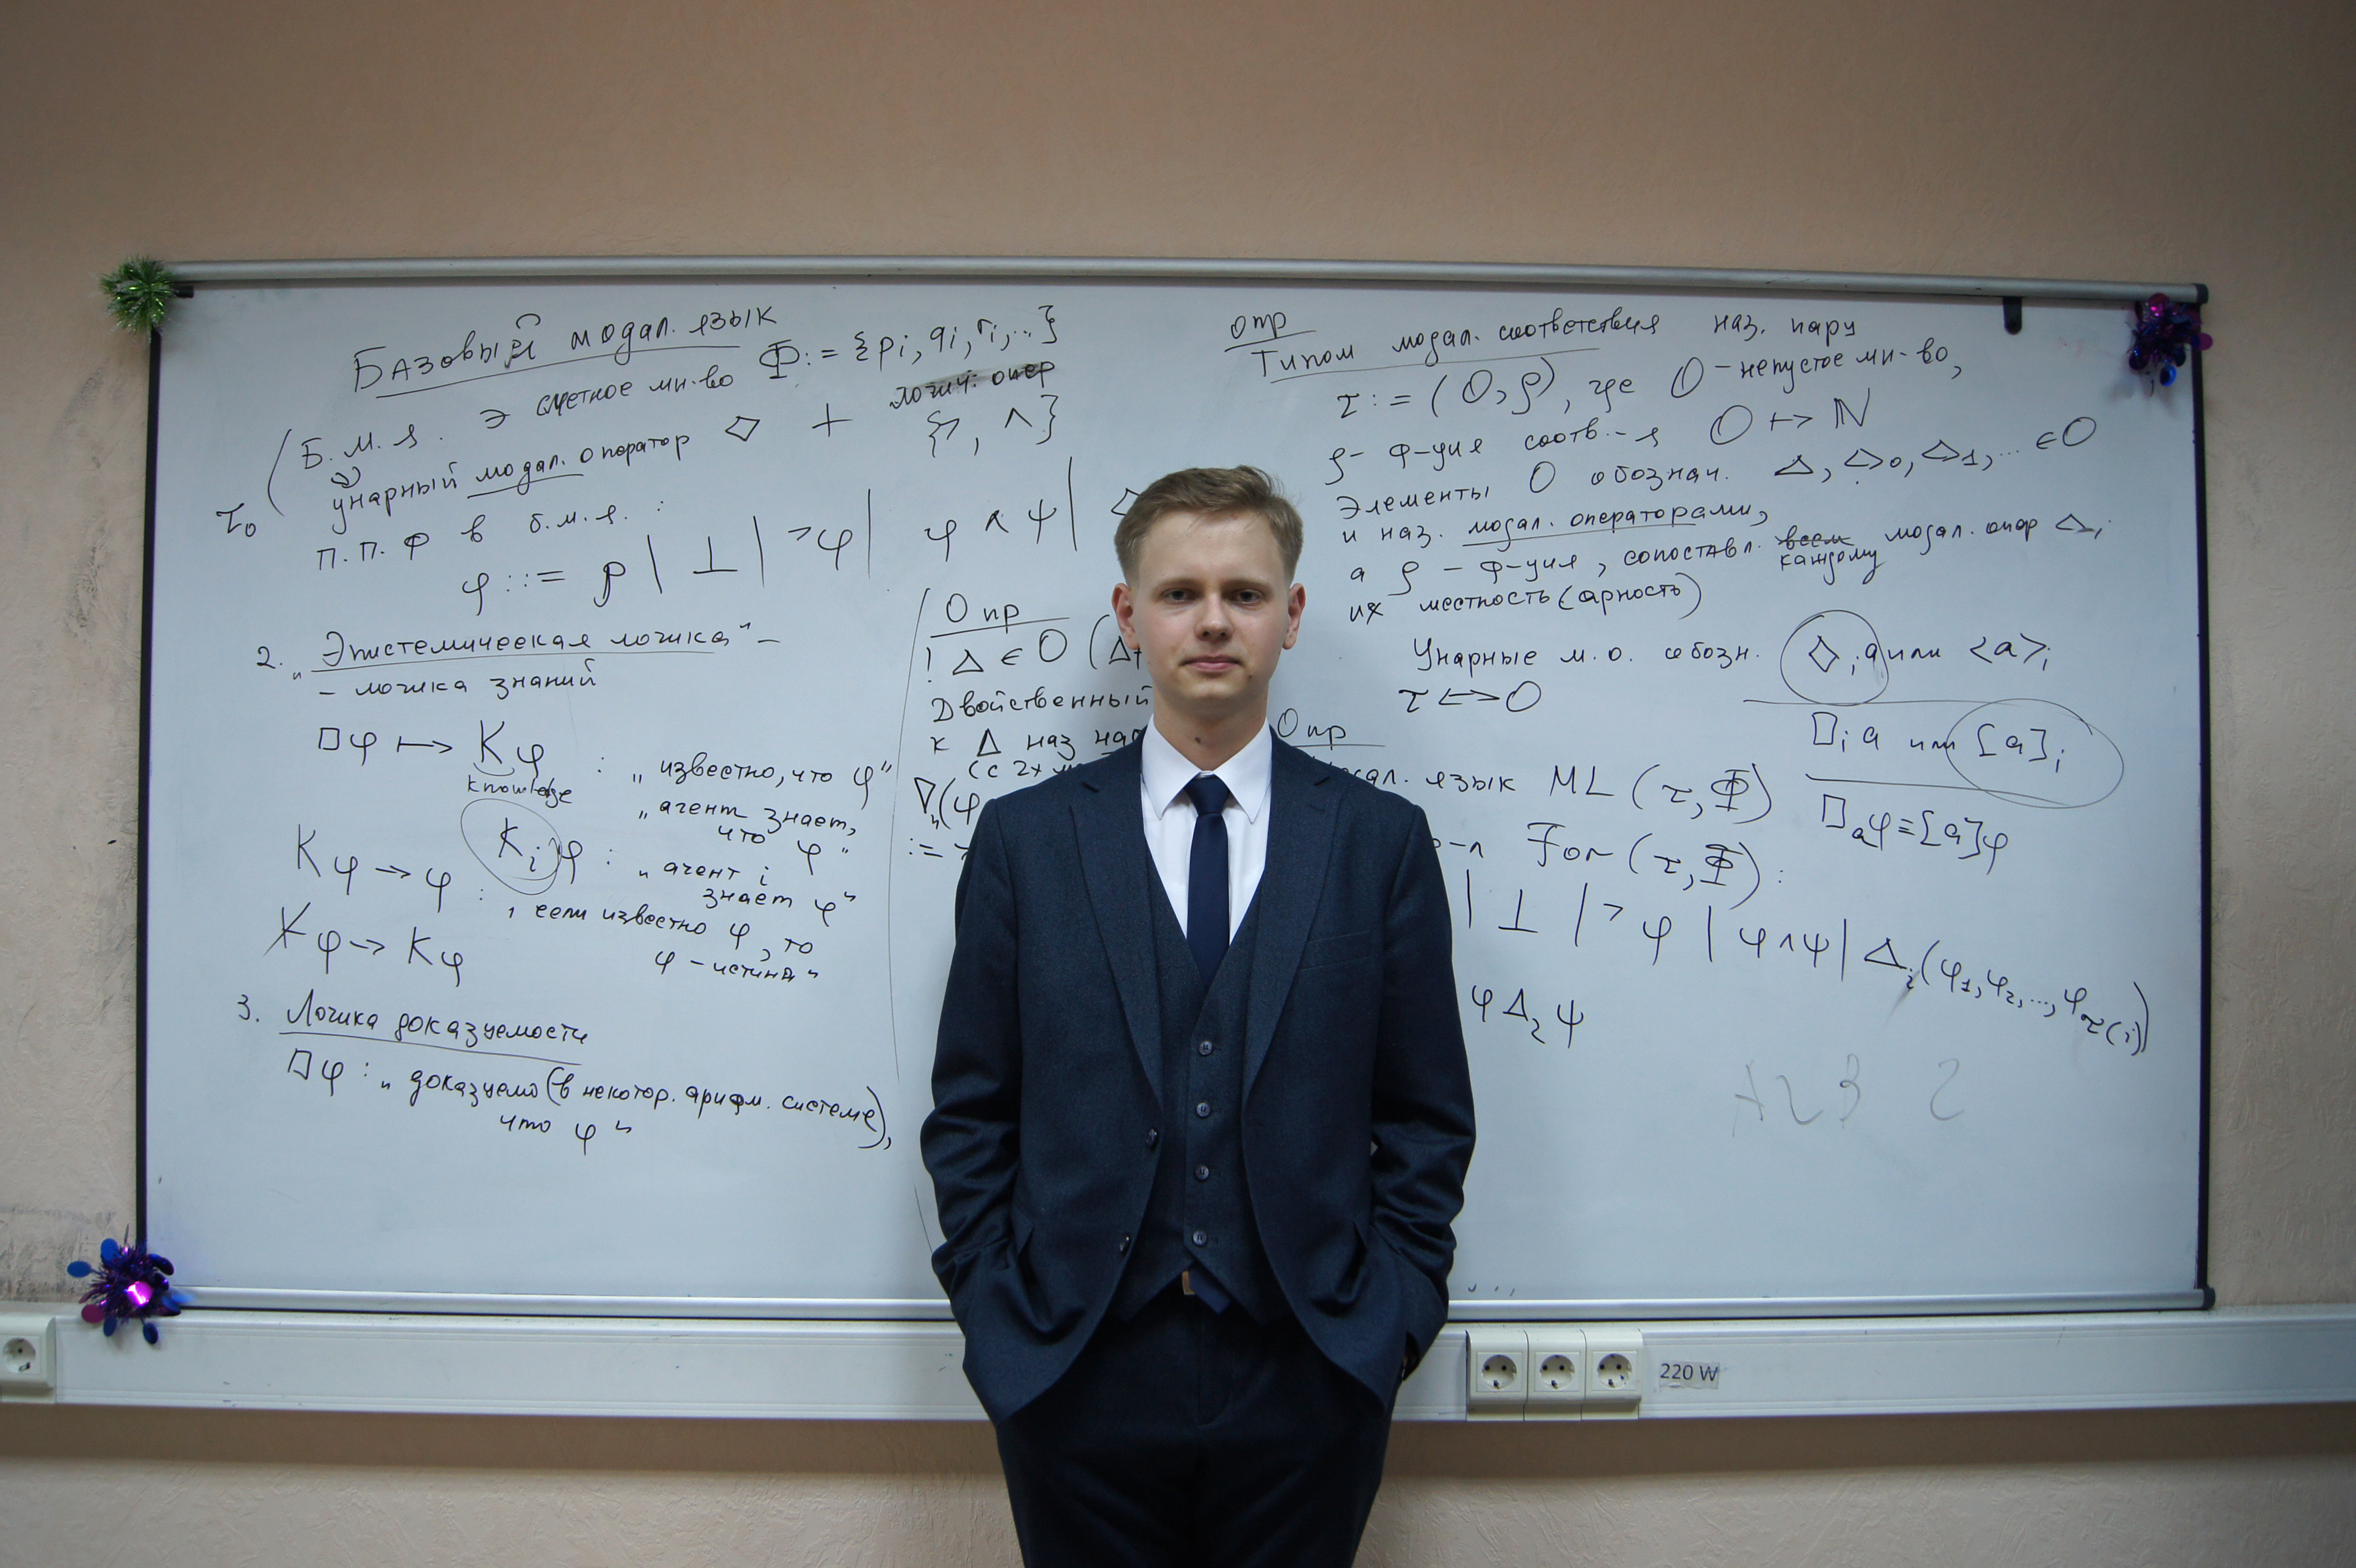 Базовый модал. язык
Б.м.я. ∋ счетное мн-во Φ := {pi, qi, ri, ...}
унарный модал. оператор ◇ + логич. опер
{¬, ∧}
τ₀
П.П.Ф в б.м.я. :
φ ::= p | ⊥ | ¬φ | φ ∧ ψ |
2. „Эпистемическая логика" –
– логика знаний
□φ ↦ Kφ : „известно, что φ"
knowledge
„агент знает,
что φ"
Kᵢφ : „агент i
знает φ"
Kφ → φ : „если известно φ, то
φ – истина"
Kφ → Kφ
3. Логика доказуемости
□φ : „доказуемо (в некотор. арифм. системе),
что φ"
Опр
! Δ ∈ O (Δ
Двойственный
к Δ наз
(с 2х
∇ᵢ(φ
:= ¬
опр
Типом модал. соответствия наз. пару
τ := (O, ρ), где O – непустое мн-во,
ρ – ф-ция соотв.-я O ↦ ℕ
Элементы O обознач. Δ, Δ₀, Δ₁, ... ∈ O
и наз. модал. операторами,
а ρ – ф-ция, сопоставл. всем модал. опер Δᵢ
каждому
их местность (арность)
Унарные м.о. обозн. ◇ᵢa или <a>ᵢ
τ ↔ O
□ᵢa или [a]ᵢ
□ₐφ ≡ [a]φ
Опр
язык ML (τ, Φ)
For (τ, Φ) :
| ⊥ | ¬φ | φ∧ψ | Δᵢ(φ₁, φ₂, ..., φτ(i))
φ Δ₂ ψ
220 W